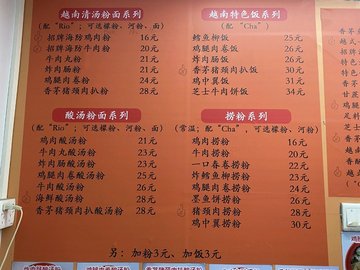 越南清汤粉面系列
(配"Rio"；可选檬粉、河粉、面)
招牌海防鸡肉粉 16元
招牌海防牛肉粉 20元
牛肉丸粉 21元
炸肉肠粉 21元
鸡腿肉卷粉 24元
香茅猪颈肉粉 28元
越南特色饭系列
(配"Cha")
鳕鱼柳饭 25元
鸡腿肉卷饭 26元
炸肉肠扒饭 30元
香茅猪颈肉扒饭 30元
鸡中翼饭 31元
芝士牛肉饼饭 34元
酸汤粉面系列
(配"Rio"；可选檬粉、河粉、面)
鸡肉酸汤粉 21元
牛肉丸酸汤粉 23元
炸肉肠酸汤粉 23元
鸡腿肉卷酸汤粉 25元
牛肉酸汤粉 26元
海鲜酸汤粉 28元
香茅猪颈肉扒酸汤粉 28元
捞粉系列
(常温；配"Cha"，可选檬粉、河粉)
鸡肉捞粉 16元
牛肉捞粉 20元
一口春卷捞粉 22元
炸鳕鱼柳捞粉 22元
鸡腿肉卷捞粉 24元
墨鱼饼捞粉 26元
猪颈肉捞粉 28元
鸡中翼捞粉 30元
另：加粉3元、加饭3元